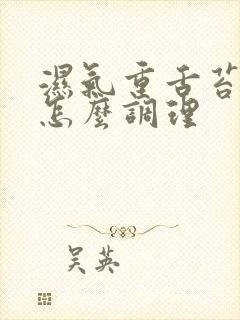 濕氣重舌苔
怎麼調理
吳英